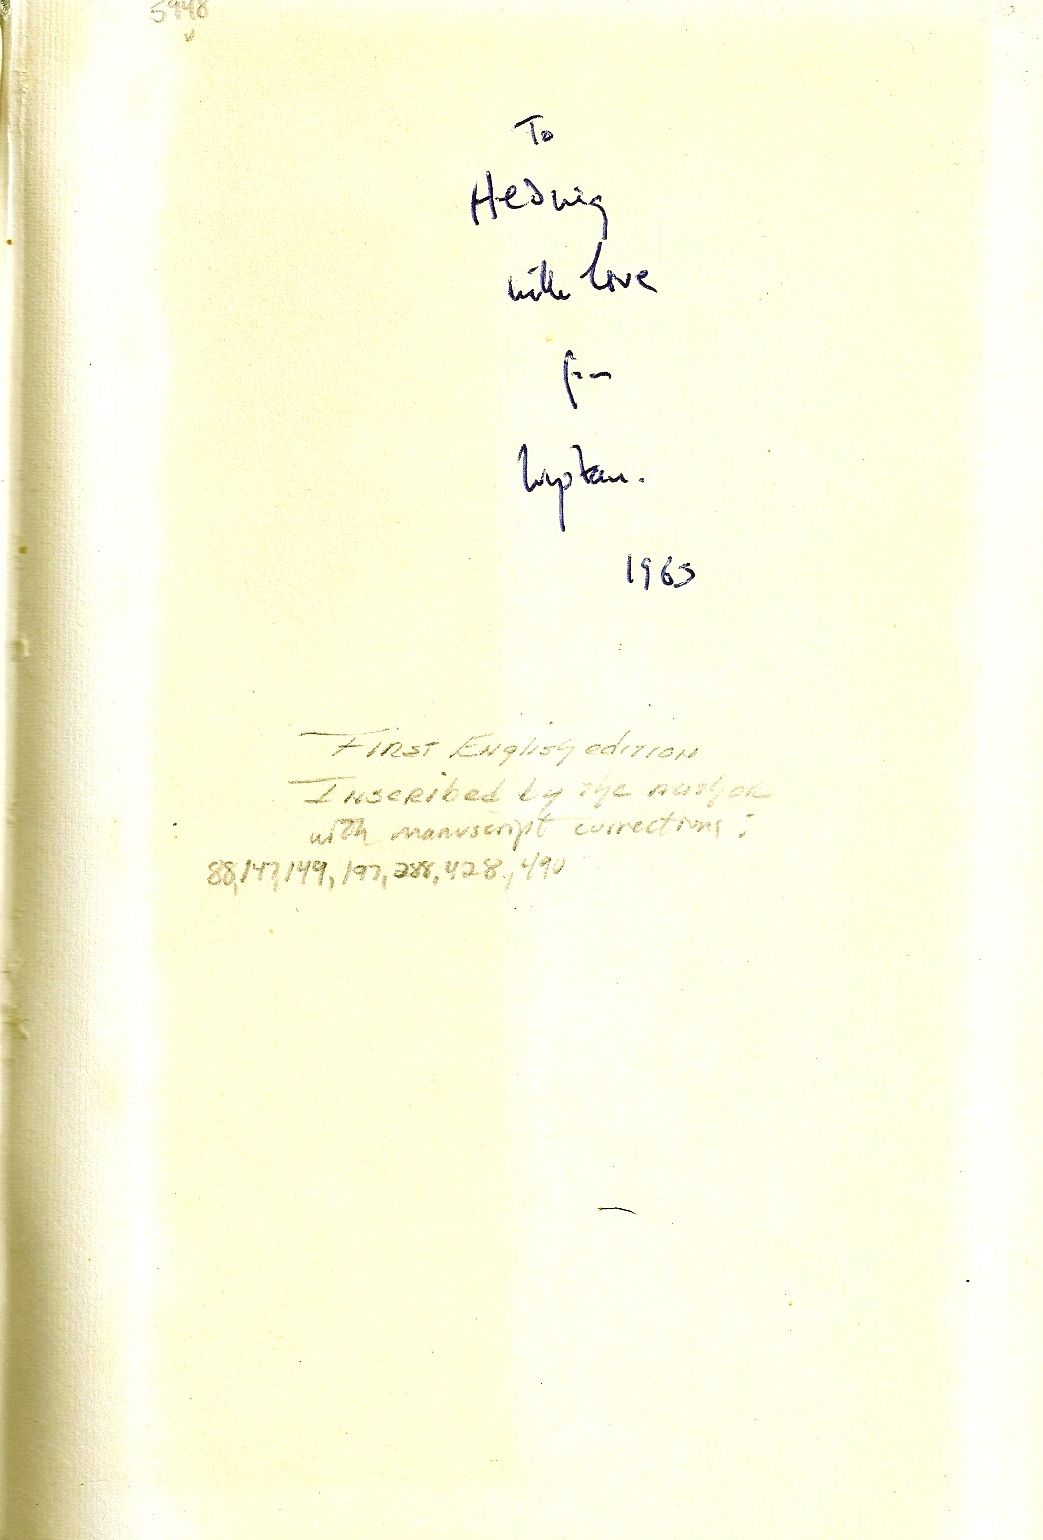 5948
To
Hedwig
with love
from
1965
First English edition
Inscribed by the author
with manuscript corrections:
88, 147, 149, 197, 288, 428., 490